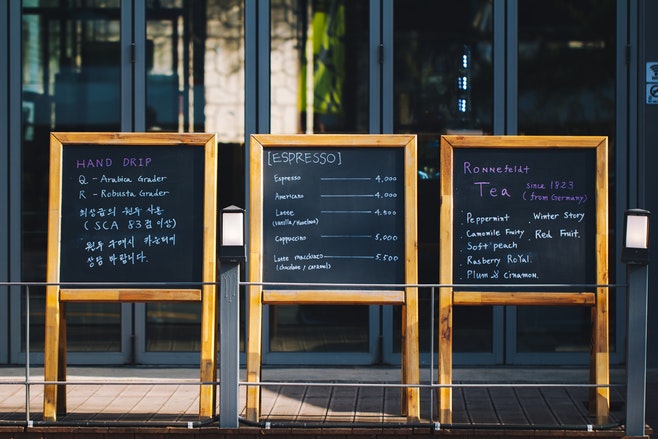 HAND DRIP
Q - Arabica Grader
R - Robusta Grader
최상급의 원두 사용
( SCA 83점 이상)
원두 구매시 카운터에
상담 바랍니다.
[ESPRESSO]
Espresso 4,000
Americano 4,000
Latte 4,500
(vanilla / Hazelnut)
Cappuccino 5,000
Latte macchiato 5,500
(chocolate / caramel)
Ronnefeldt
Tea since 1823
(from Germany)
Peppermint Winter Story
Camomile Fruity Red Fruit.
Soft peach
Rasberry Royal.
Plum & cinnamon.